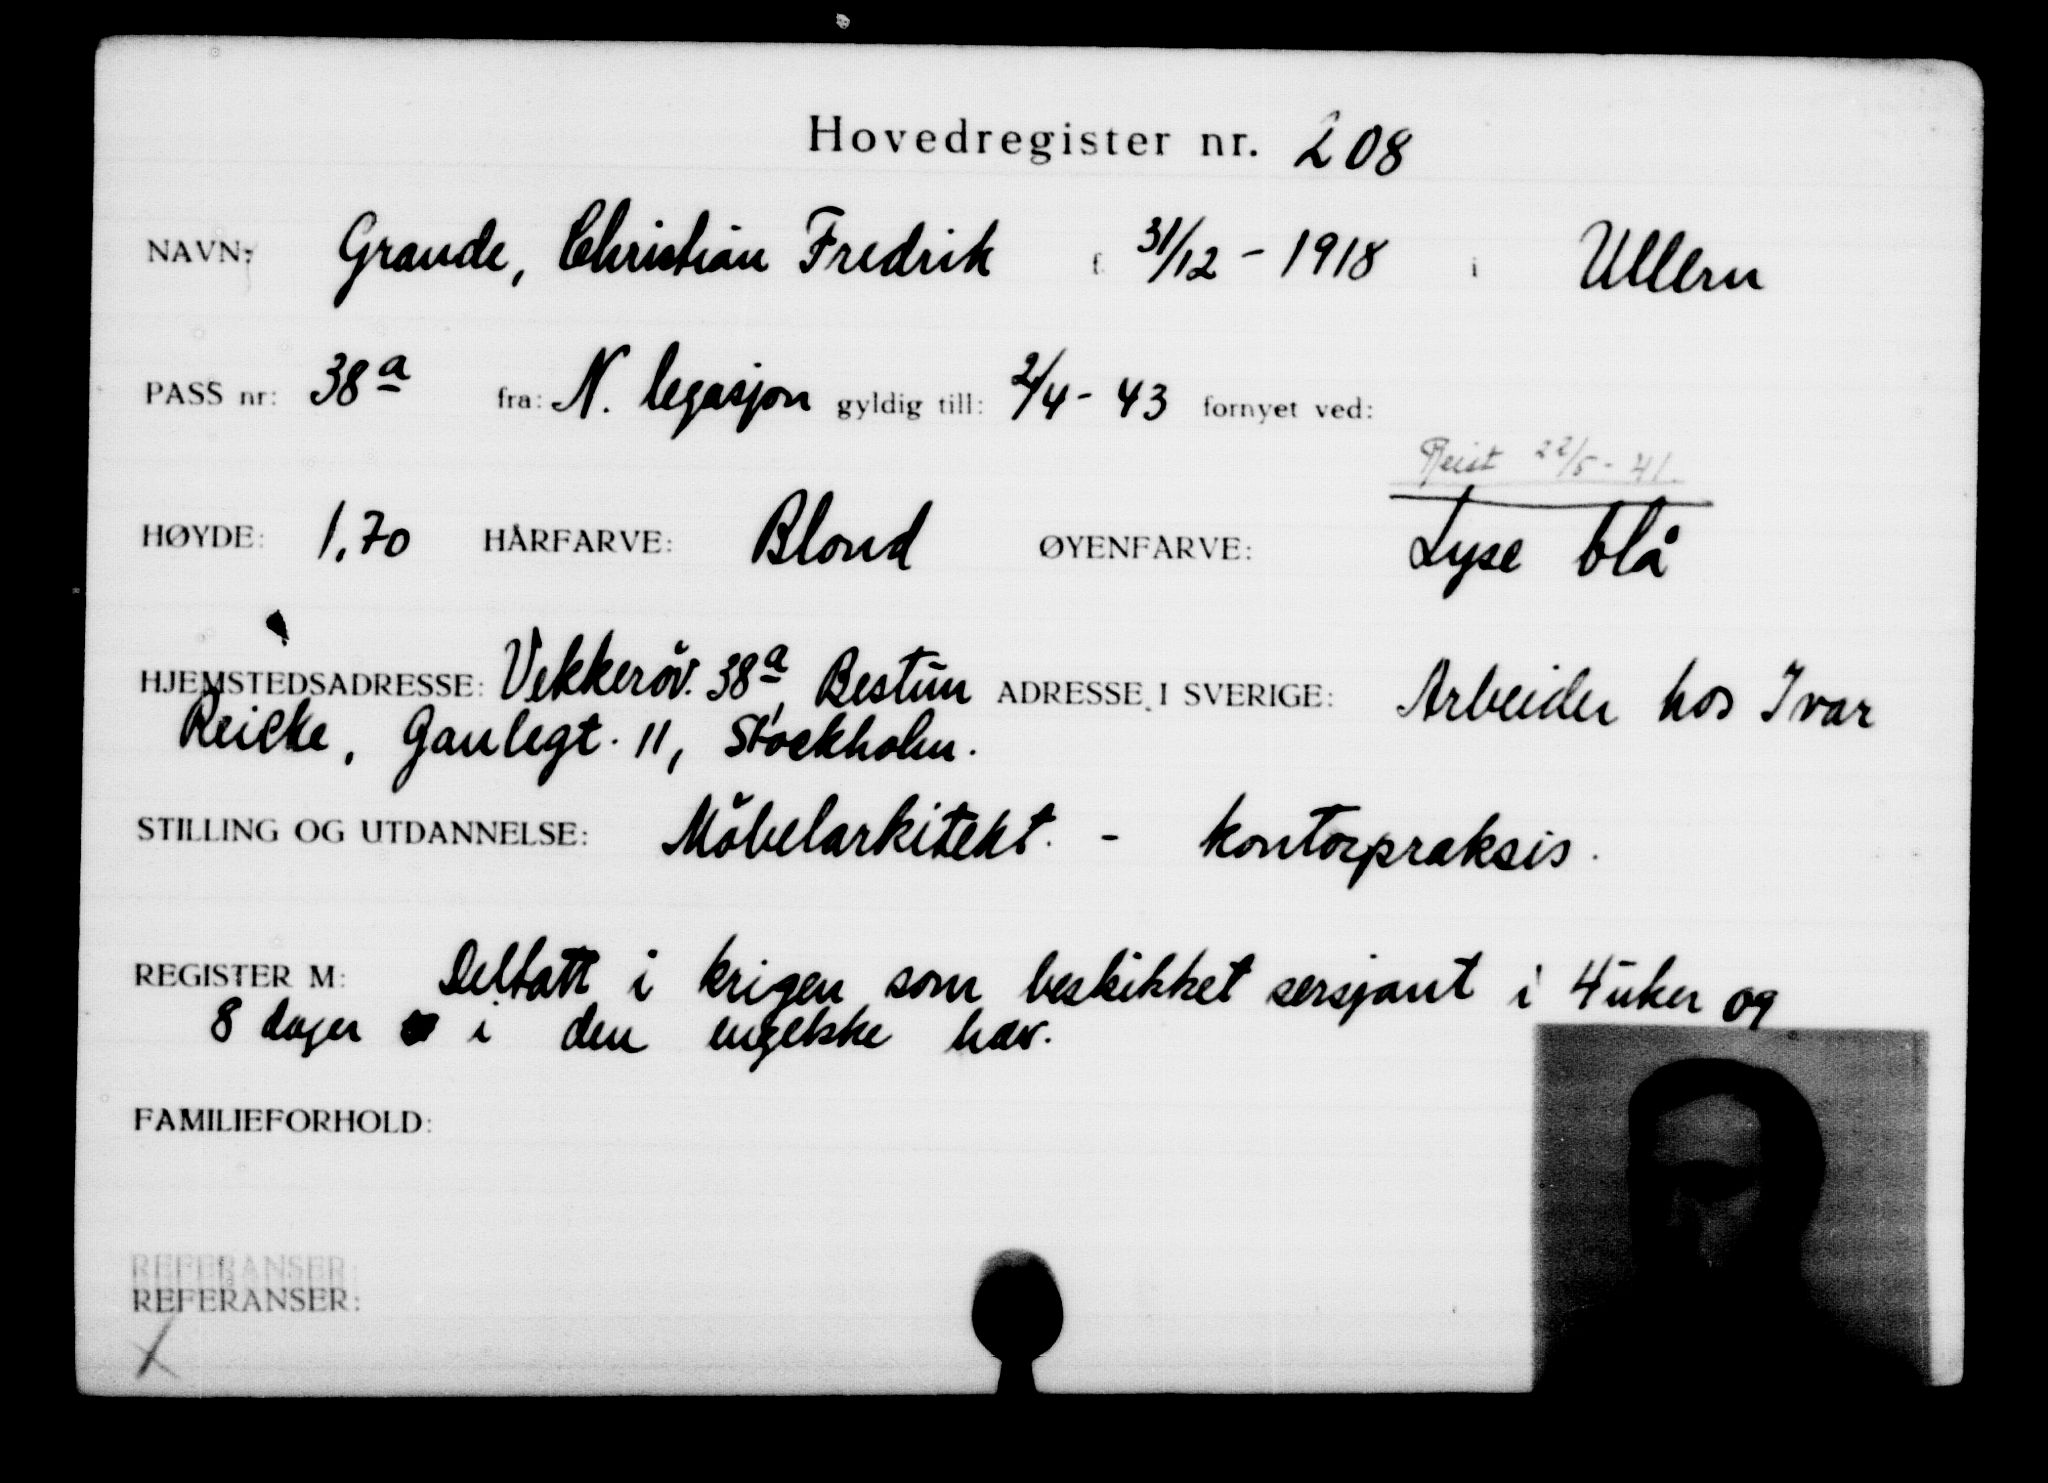 Hovedregister nr. 208
NAVN: Grande, Christian Fredrik f. 31/12 - 1918 i Ullern
PASS nr: 38a fra: N. legasjon gyldig till: 2/4 - 43 fornyet ved:
Reist 22/5 - 41.
HØYDE: 1.70 HÅRFARVE: Blond ØYENFARVE: Lyse blå
HJEMSTEDSADRESSE: Vekkeröv. 38a, Bestun ADRESSE I SVERIGE: Arbeider hos Ivar
Reicke, Gamlegt. 11, Stockholm.
STILLING OG UTDANNELSE: Möbelarkitekt. - kontorpraksis.
REGISTER M: Deltatt i krigen som beskikket sersjant i 4 uker og
8 dager i den engelske hær.
FAMILIEFORHOLD:
REFERANSER:
REFERANSER:
X